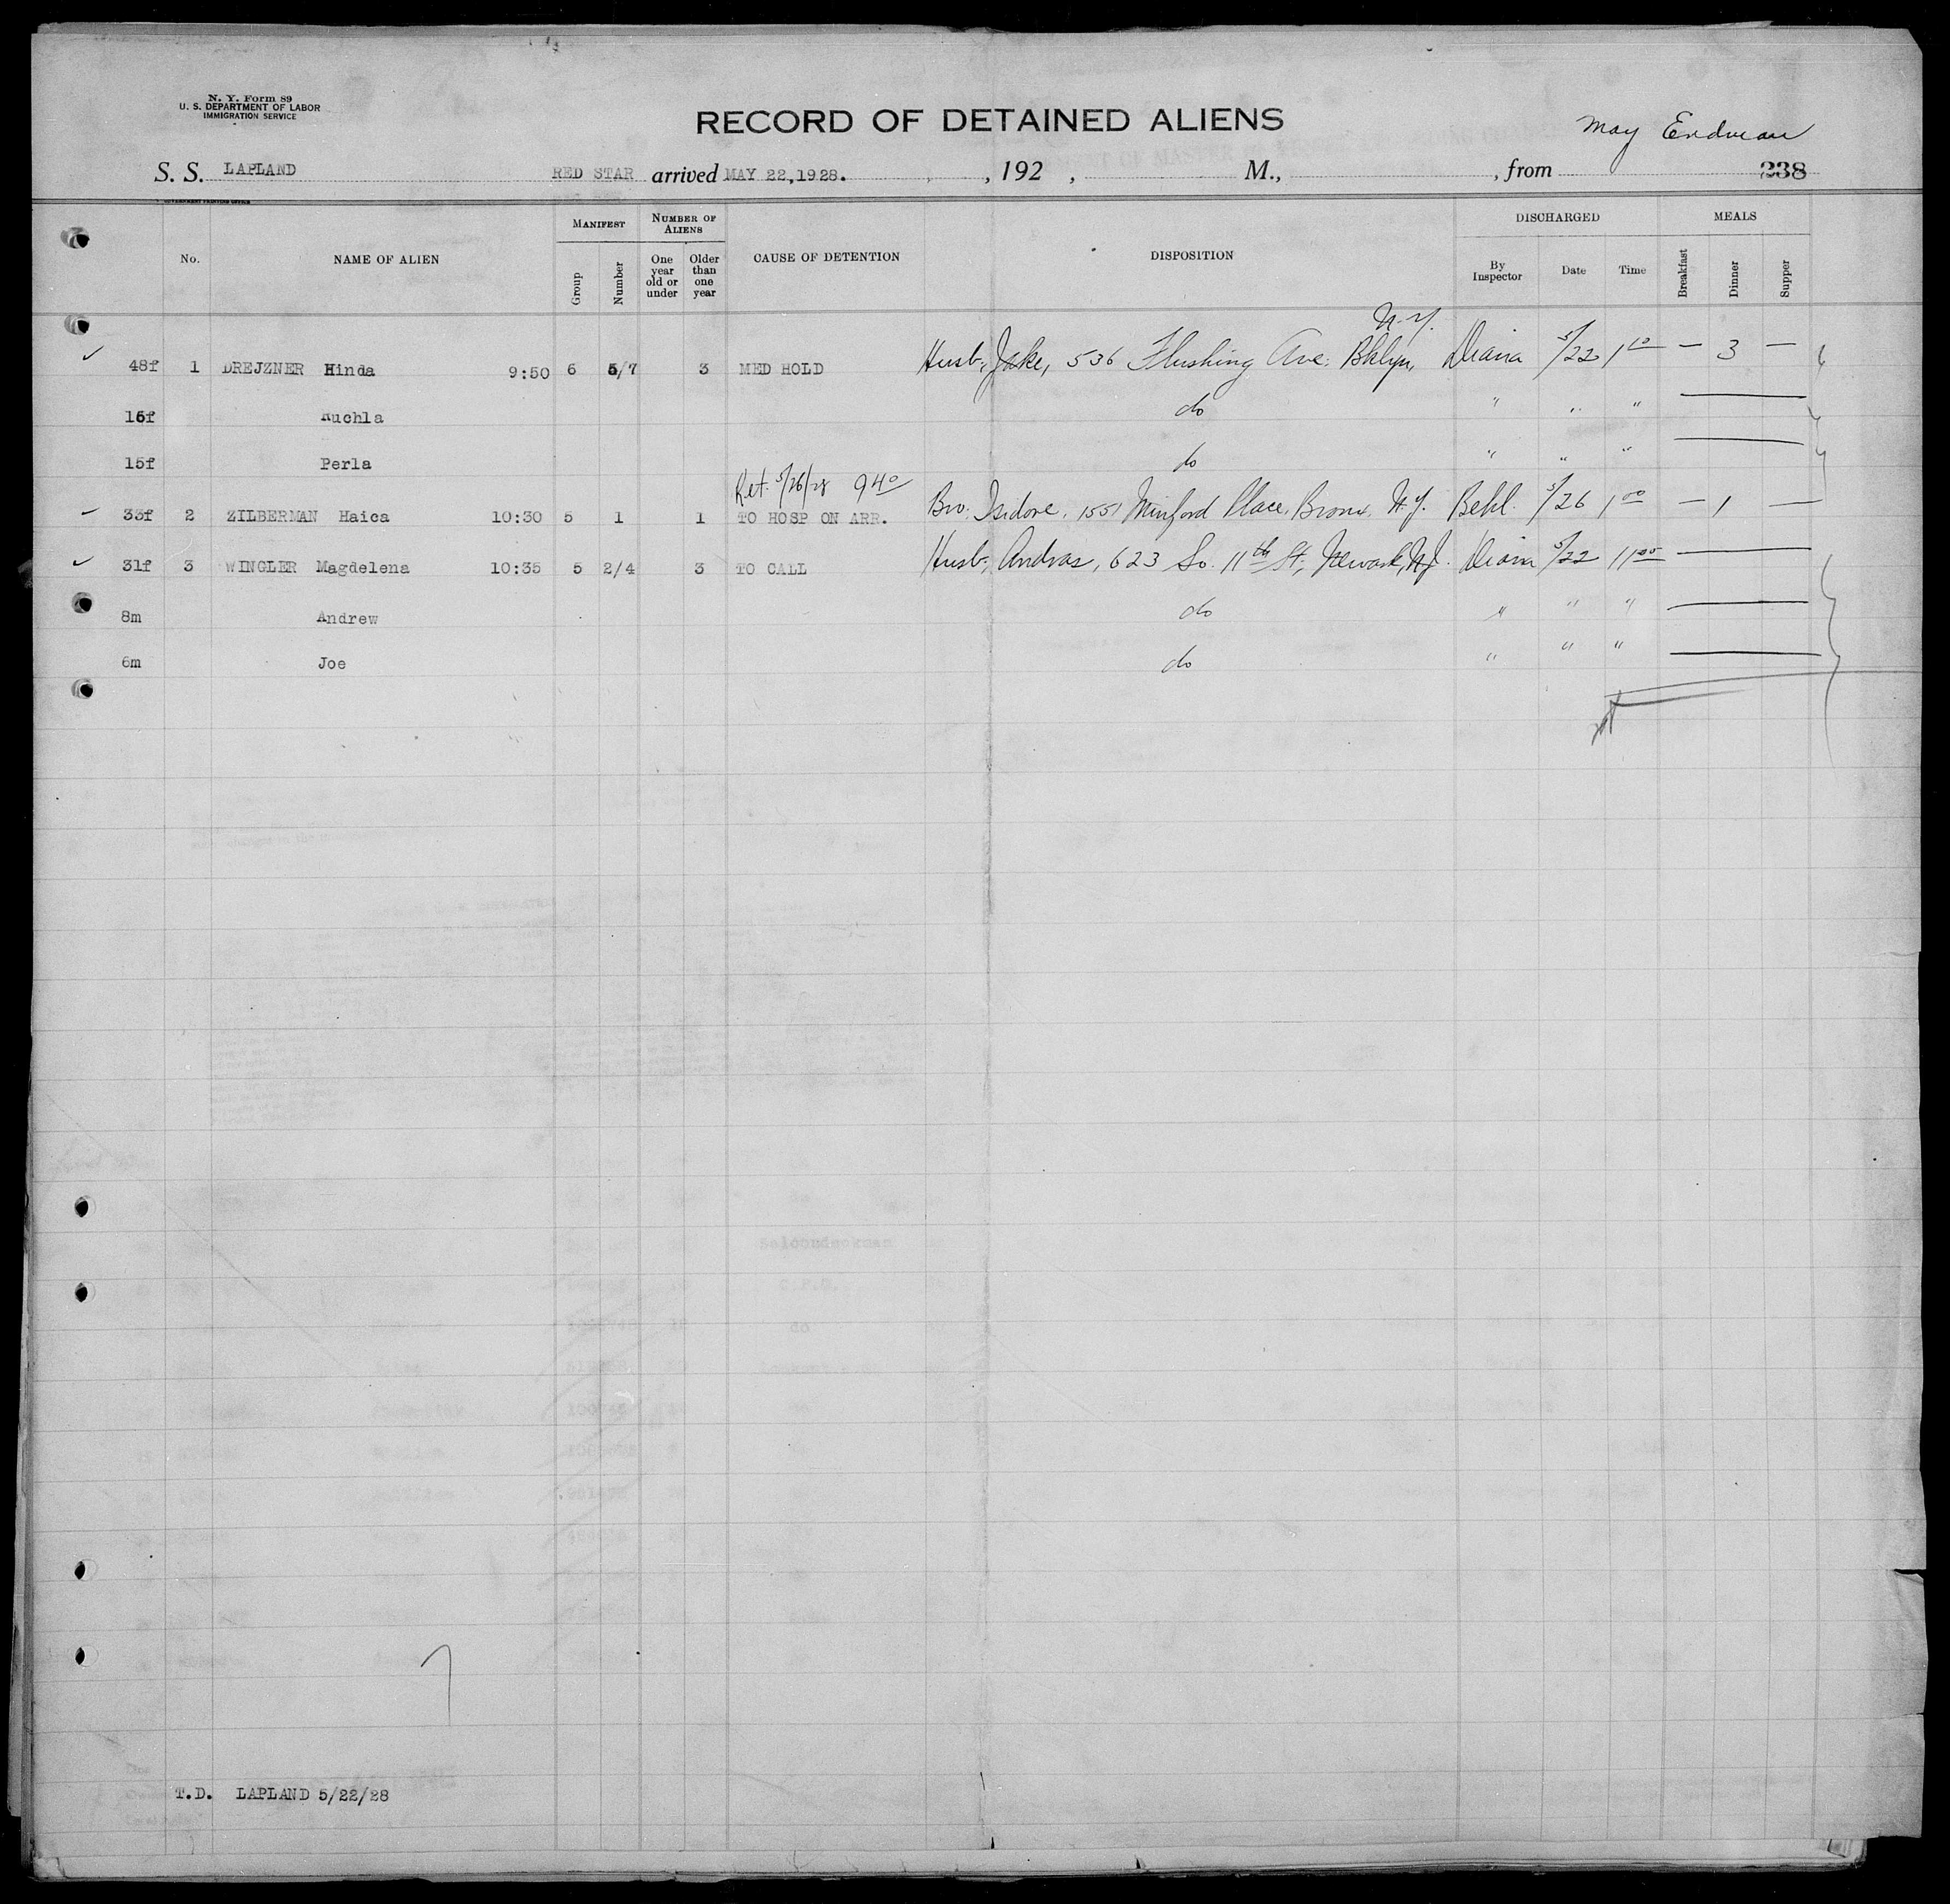 N. Y. Form 89
U. S. DEPARTMENT OF LABOR
IMMIGRATION SERVICE
RECORD OF DETAINED ALIENS
May Erdman
S. S. LAPLAND RED STAR arrived MAY 22,1928. , 192 , M., , from 238
GOVERNMENT PRINTING OFFICE
No. NAME OF ALIEN MANIFEST Group Number NUMBER OF ALIENS One year old or under Older than one year CAUSE OF DETENTION DISPOSITION DISCHARGED By Inspector Date Time MEALS Breakfast Dinner Supper
N.Y.
48f 1 DREJZNER Hinda 9:50 6 5/7 3 MED HOLD Husb, Jake, 536 Flushing Ave. Bklyn, Diana 5/22 1 10 — 3 —
16f Ruchla do " " "
15f Perla do " " "
Ret. 5/26/28 9 40
33f 2 ZILBERMAN Haica 10:30 5 1 1 TO HOSP ON ARR. Bro. Isidore, 1551 Minford Place, Bronx, N.Y. Behl. 5/26 1 00 — 1 —
31f 3 WINGLER Magdelena 10:35 5 2/4 3 TO CALL Husb, Andras, 623 So. 11th St, Newark, NJ. Diana 5/22 11 00
8m Andrew do " " "
6m Joe do " " "
Saloondeckman
T.D. LAPLAND 5/22/28